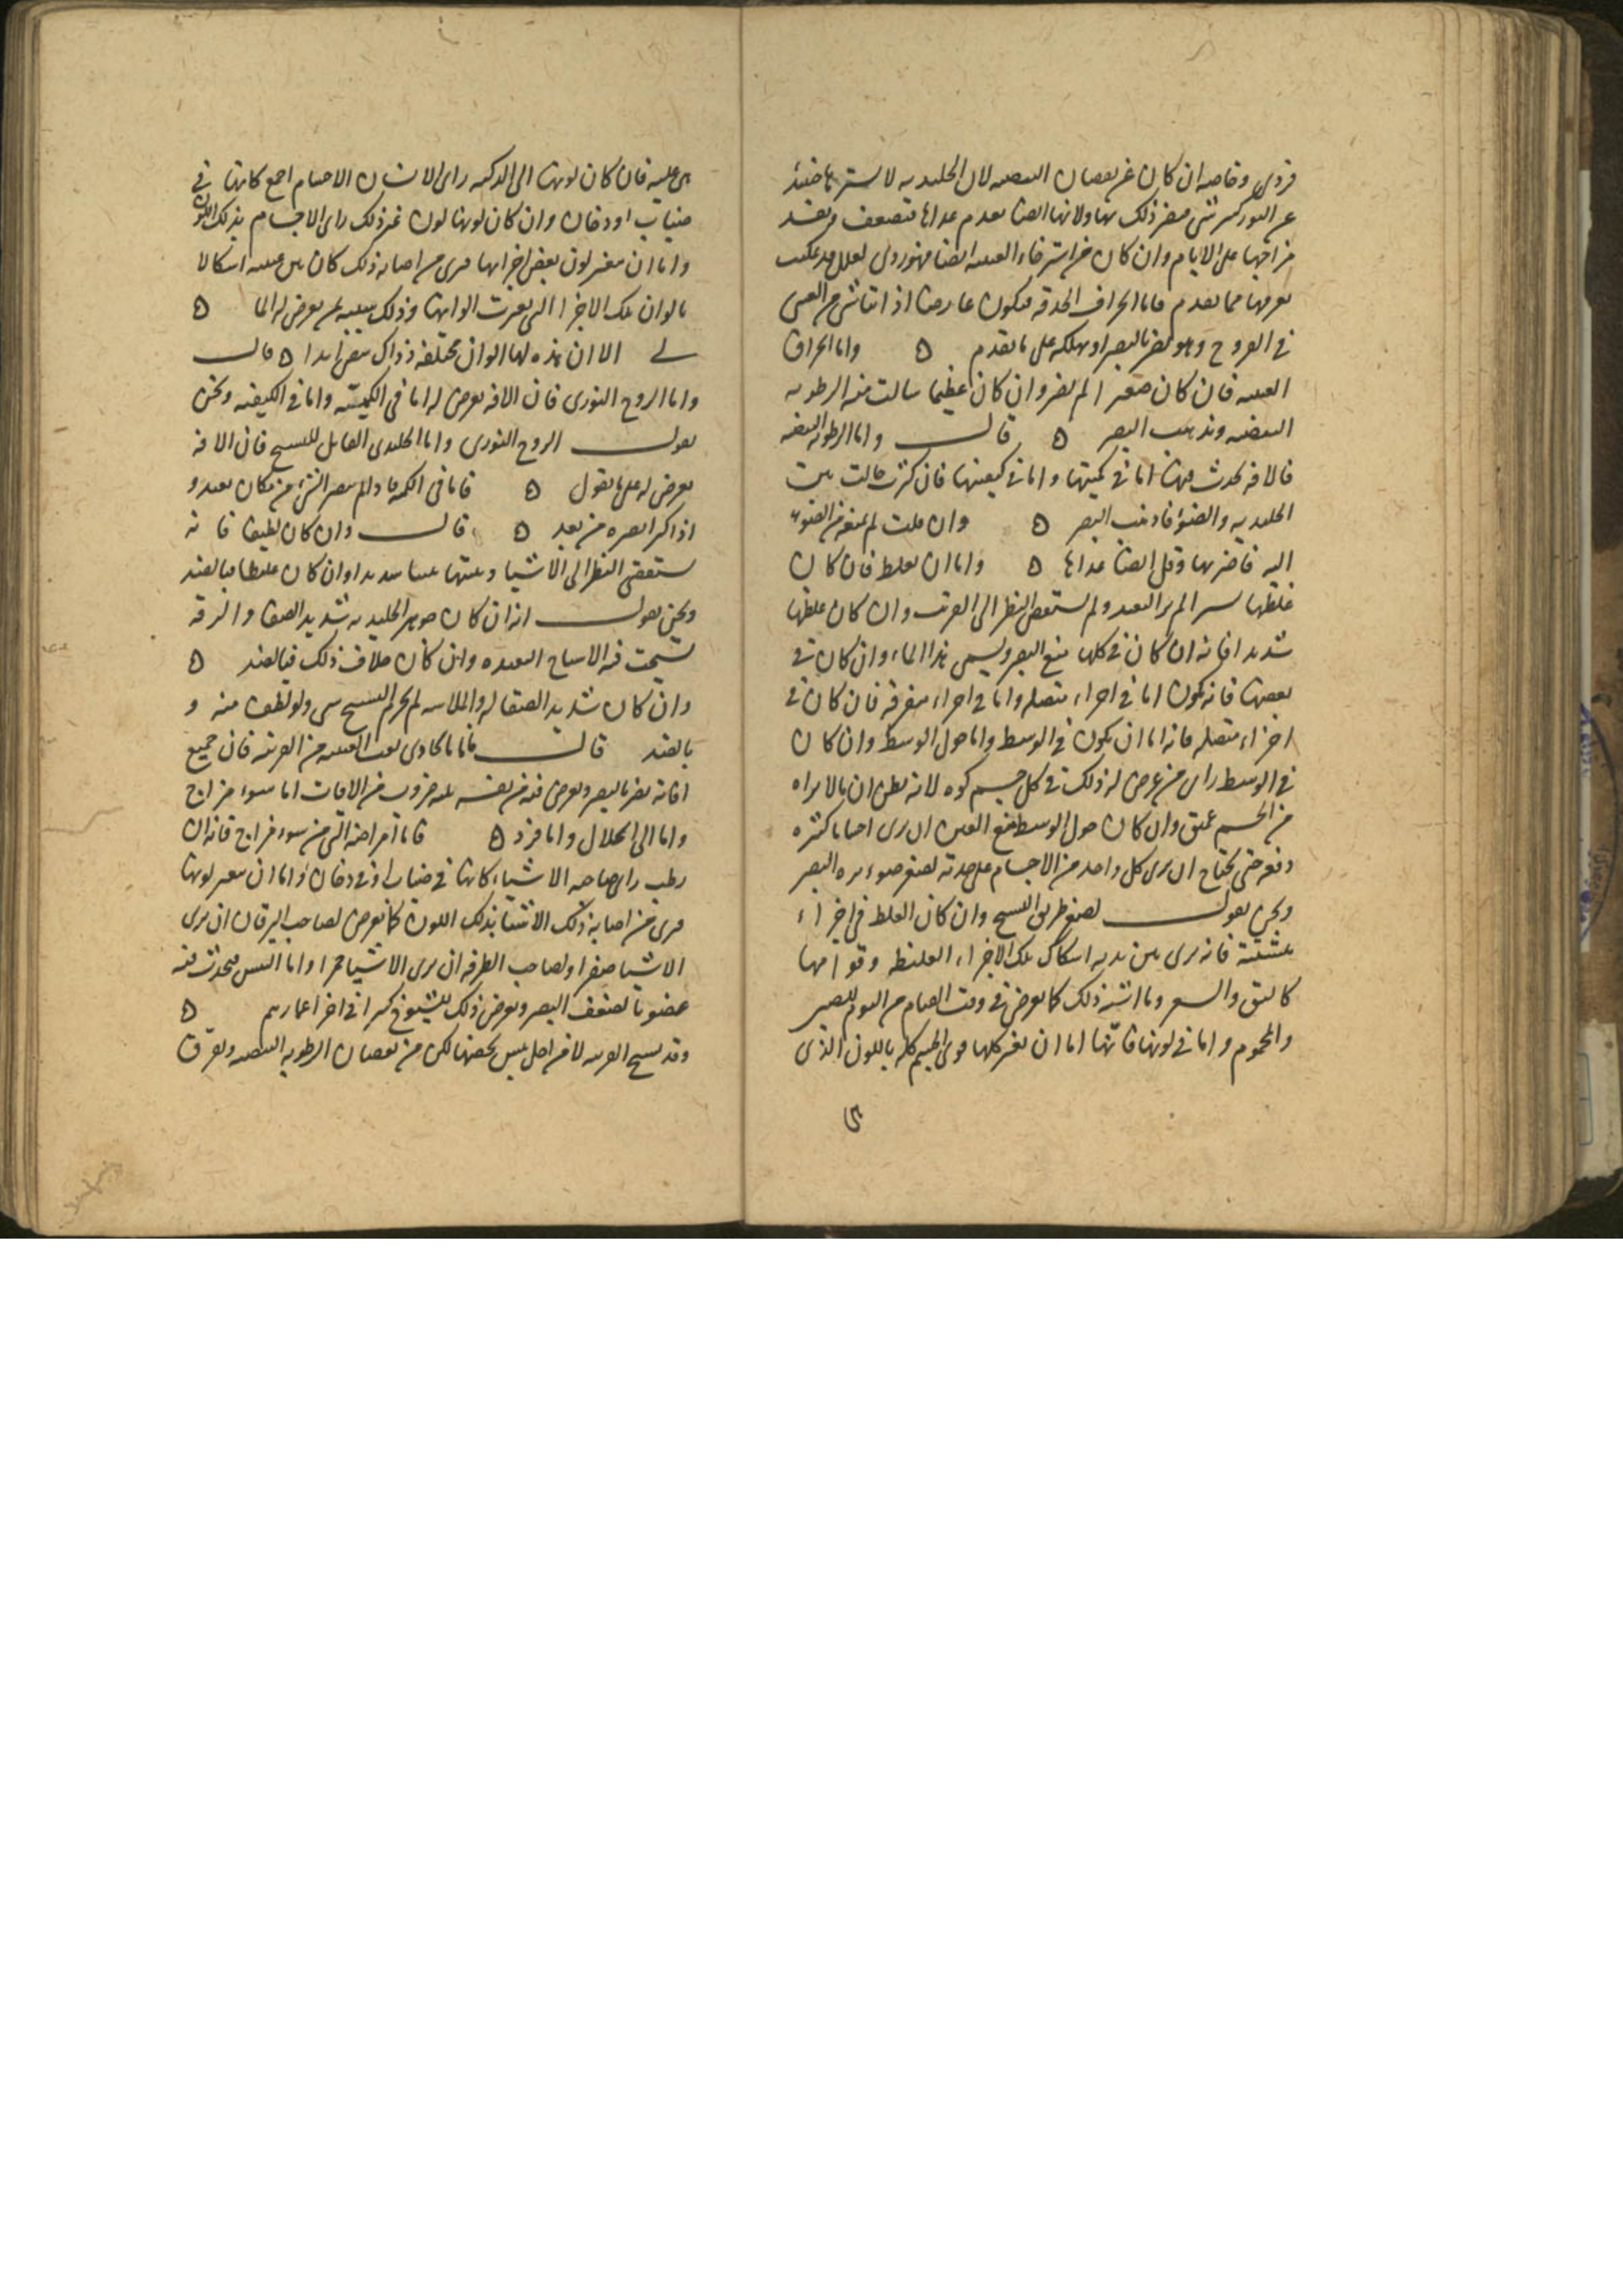 فردى وخاصه ان كان عن نقصان البيضيه لان الجليديه لا يسترها حينئذ
عن النور كبير شى فيضر ذلك بها ولانها ايضا تعدم غذاها فتضعف ويفسد
مزاجها على الايام وان كان من استرخاء العنبيه ايضا فهو ردى لعلل قد
تعرفها مما تقدم فاما انحراف الحدقه فيكون عارضا اذا
فى القروح وهو يضر بالبصر او يهلكه على ما تقدم ۵ واما انخراق
العنبيه فان كان صغيرا لم يضر وان كان عظيما سالت منه الرطوبه
البيضيه وذهب البصر ۵ قال واما الرطوبه البيضيه
فالافه تحدث فيها اما فى كميتها واما فى كيفيتها فان كثرت حالت بين
الجليديه والضوء فاذهبت البصر ۵ وان قلت لم تمنع من الضوء
اليه فاضر بها وقل ايضا غذاها ۵ واما ان تغلظ فان كان
غلظها يسيرا لم ير البعيد ولم يستقص النظر الى القريب وان كان غلظها
شديدا فانه ان كان فى كلها منع البصر ويسمى هذا الماء وان كان فى
بعضها فانه يكون اما فى اجزاء متصله واما فى اجزاء متفرقه فان كان فى
اجزاء متصله فانه اما ان يكون فى الوسط واما حول الوسط وان كان
فى الوسط راى من عرض له ذلك فى كل جسم كوه لانه يظن ان ما لا يراه
من الجسم عميق وان كان حول الوسط منع العين ان ترى اجساما كثيره
دفعه حتى يحتاج ان يرى كل واحد من الاجسام على حدته لصغر صنوبره البصر
ونحن نقول لصغر طريق الشبح وان كان الغلظ فى اجزاء
متشتته فانه يرى بين يديه اشكال تلك الاجزاء الغليظه وقوامها
كالبق والشعر وما اشبه ذلك كما يعرض فى وقت القيام من النوم للصبى
والمحموم واما فى لونها فانها اما ان تغير كلها فيرى الجسم كله باللون الذى
هى عليه فان كان لونها الى الدكنه راى الانسان الاجسام اجمع كانها فى
ضباب او دخان وان كان لونها لون غير ذلك راى الاجسام بذلك اللون
واما ان يتغير لون بعض اجزايها فيرى من اصابه ذلك كان بين عينيه اشكالا
بالوان تلك الاجزا التى تغيرت الوانها وذلك شبيه بمن يعرض له الما ۵
لى الا ان هذه لها الوان مختلفه وذاك ابيض ابدا ۵ قال
واما الروح النورى فان الافه تعرض له اما فى الكميه واما فى الكيفيه ونحن
نقول الروح النورى واما الجليدى القابل للشبح فان الافه
تعرض له على ما نقول ۵ فاما فى الكميه فاذا لم يبصر الشئ من مكان بعيد و
اذا كثر ابصره من بعد ۵ قال وان كان لطيفا فانه
يستقصى النظر الى الاشيا ويثبتها تثبيتا شديدا وان كان غليظا فبالضد
ونحن نقول انه ان كان جوهر الجليديه شديد الصفا والرقه
تشبحت فيه الاشباح البعيده وان كان خلاف ذلك فبالضد ۵
وان كان شديد الصقاله والملاسه لم يخرم التشبح شى ولو لطف منه و
بالضد قال فاما ما يحاذى ثقب العنبيه من القرنيه فان جميع
افاته تضر بالبصر ويعرض فيه من نفسه ثلثه ضروب من الافات اما سوء مزاج
واما انحلال واما فرد ۵ فاما امراضه التى من سوء مزاج فانه ان
رطب راى صاحبه الاشياء كانها فى ضباب او فى دخان واما ان تغير لونها
فيرى من اصابه ذلك الاشيا بذلك اللون كما يعرض لصاحب اليرقان ان يرى
الاشيا صفرا ولصاحب الطرفه ان يرى الاشيا حمرا واما اليبس فيحدث فيه
غضونا تضعف البصر ويعرض ذلك للشيوخ كثيرا فى اخر اعمارهم ۵
وقد تتشنج القرنيه لا من اجل يبس يخصها لكن من نقصان الرطوبه البيضيه ويفرق